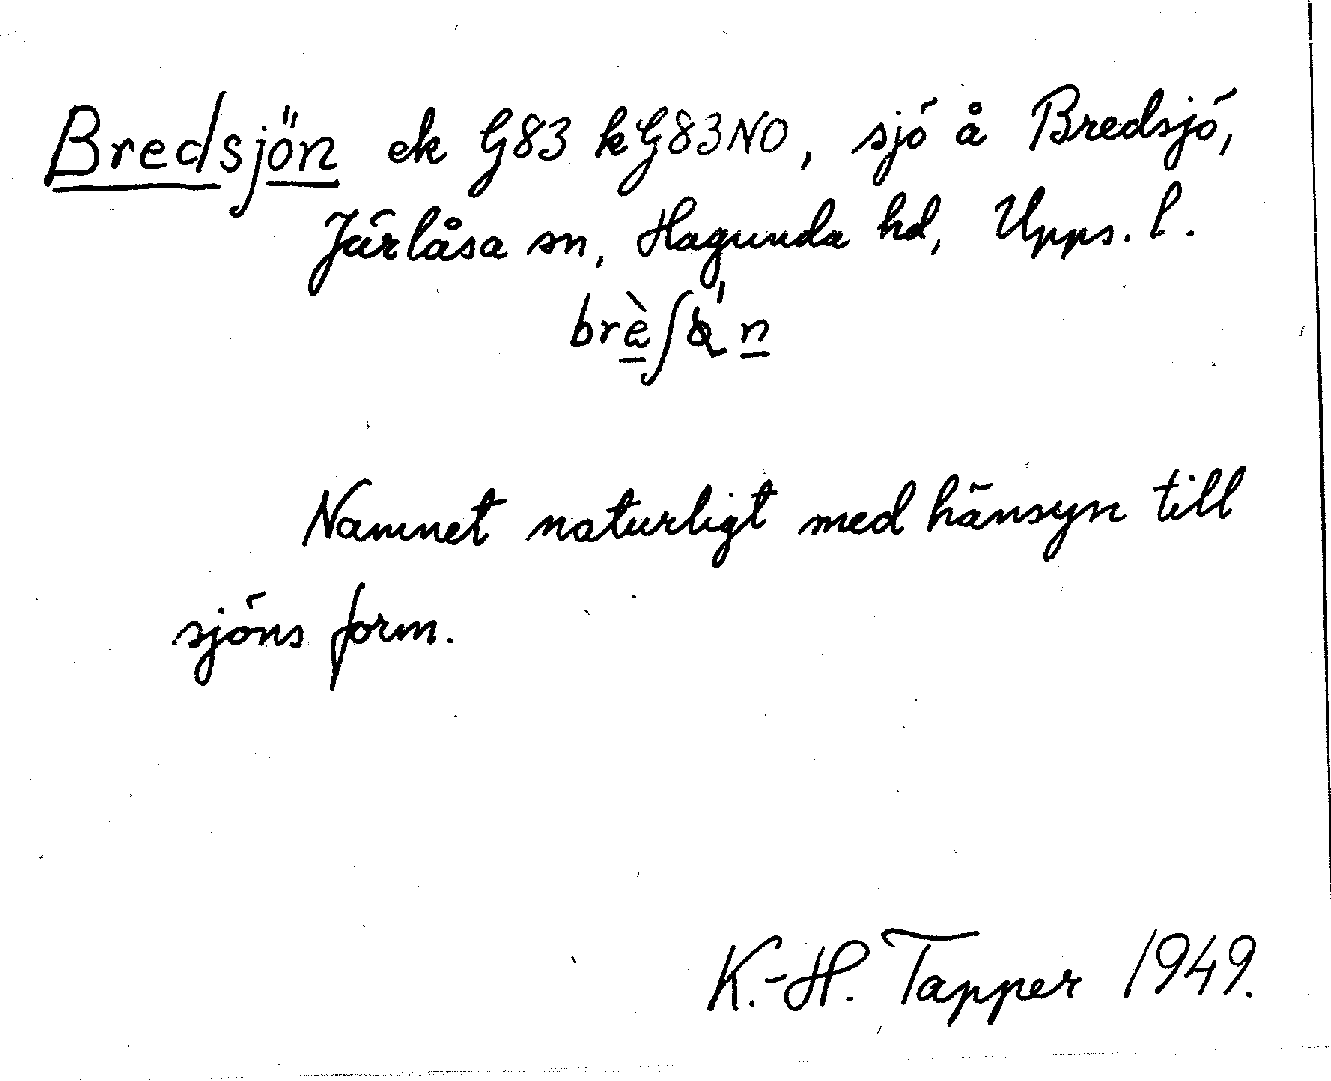 Bredsjön ek G83 kG83NO, sjö å Bredsjö,
Järlåsa sn, Hagunda hd, Upps. l.
Namnet naturligt med hänsyn till
sjöns form.
K.-H. Tapper 1949.